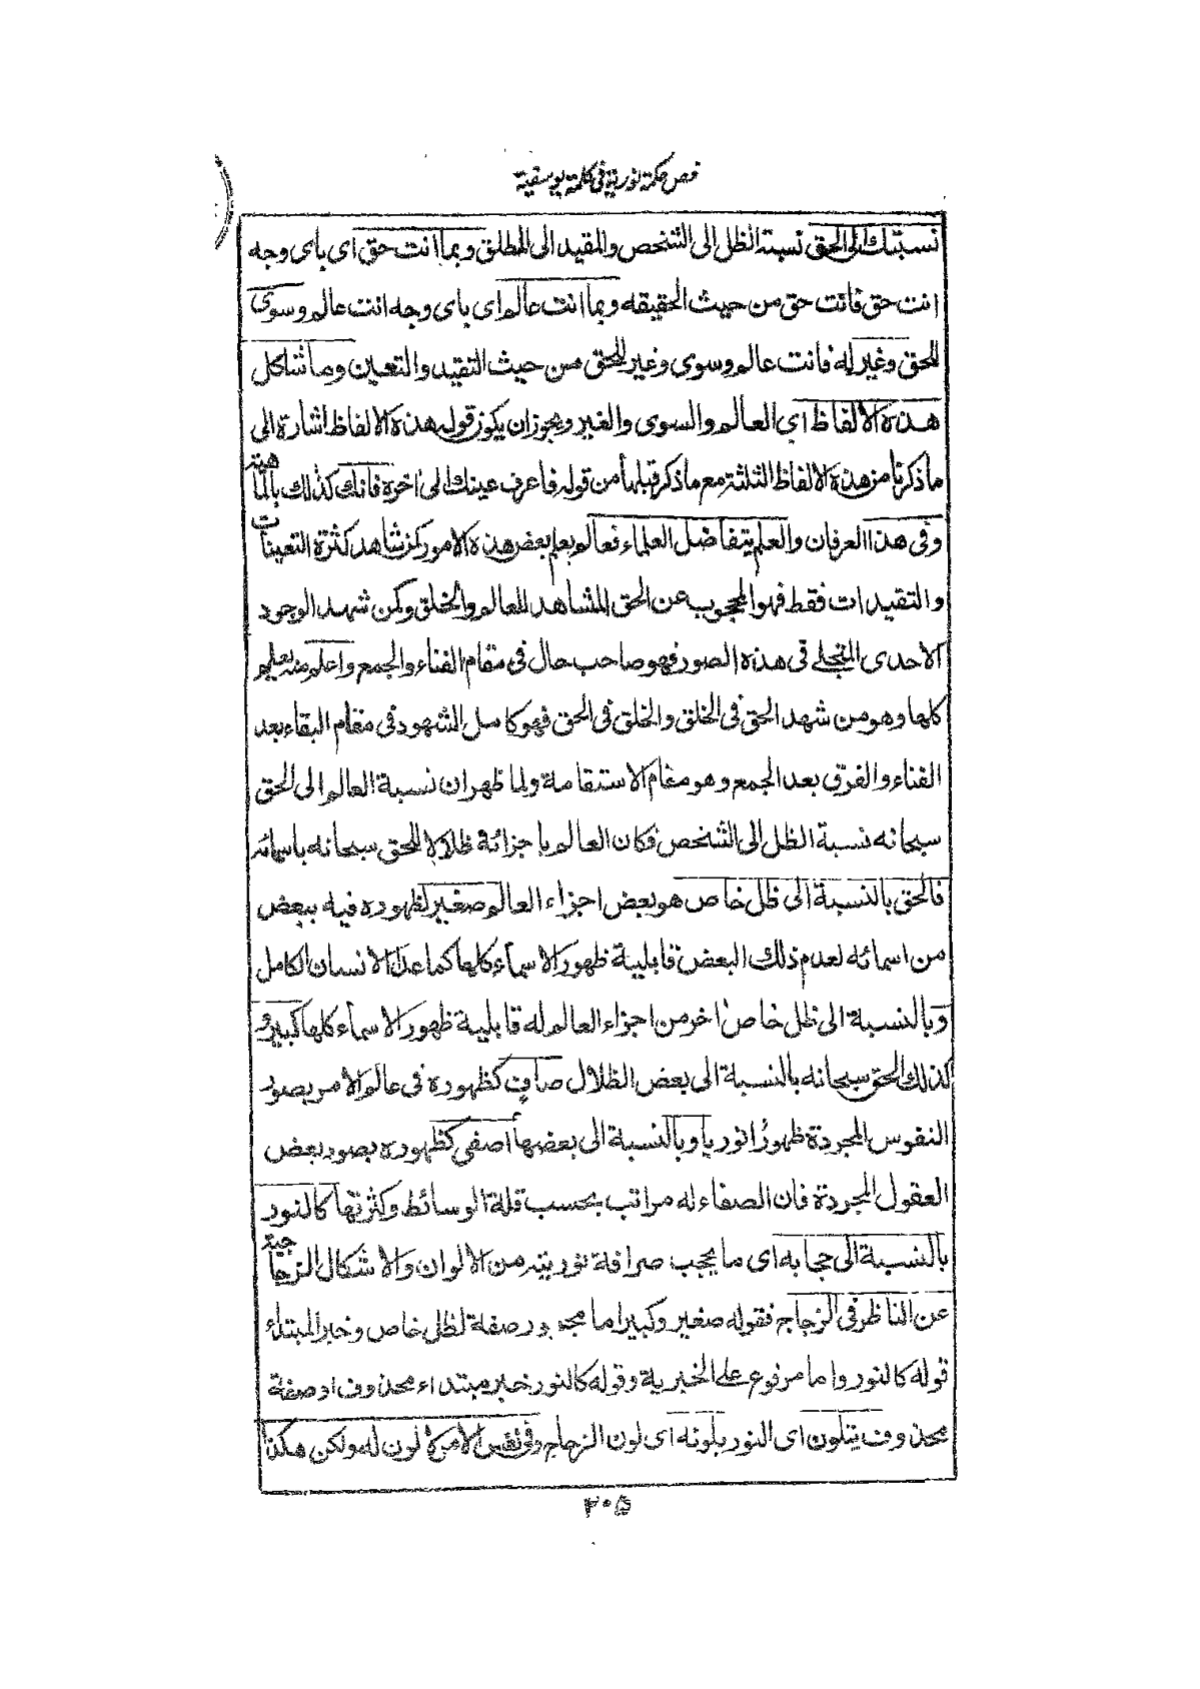 فص حكمة نورية فى كلمة يوسفية
نسبتك الى الحق نسبة الظل الى الشخص والمقيد الى المطلق وبما انت حق اى باى وجه
انت حق فانت حق من حيث الحقيقه وبما انت عالم اى باى وجه انت عالم وسوى
للحق وغير له فانت عالم وسوى وغير للحق من حيث التقيد والتعين وما شاكل
هذه الالفاظ اي العالم والسوى والغير ويجوز ان يكون قوله هذه الالفاظ اشارة الى
ما ذكرنا من هذه الالفاظ الثلثة مع ما ذكر قبلها من قوله فاعرف عينك الى اخره فانك كذلك بالماهية
وفى هذا العرفان والعلم يتفاضل العلماء فعالم يعلم بعض هذه الامور كمن شاهد كثرة التعينات
والتقيدات فقط فهو المحجوب عن الحق المشاهد للعالم والخلق وكمن شهد الوجود
الاحدى المتجلى فى هذه الصور فهو صاحب حال فى مقام الفناء والجمع واعلم منه يعلم
كلها وهو من شهد الحق فى الخلق والخلق فى الحق فهو كامل الشهود فى مقام البقاء بعد
الفناء والفرق بعد الجمع وهو مقام الاستقامة ولما ظهر ان نسبة العالم الى الحق
سبحانه نسبة الظل الى الشخص فكان العالم باجزائه ظلالا للحق سبحانه باسمائه
فالحق بالنسبة الى ظل خاص هو بعض اجزاء العالم صغير لظهوره فيه ببعض
من اسمائه لعدم ذلك البعض قابلية ظهور الاسماء كلها كما عدا الانسان الكامل
وبالنسبة الى ظل خاص اخر من اجزاء العالم له قابلية ظهور الاسماء كلها كبير و
كذلك الحق سبحانه بالنسبة الى بعض الظلال صاف كظهوره فى عالم الامر بصور
النفوس المجردة ظهورا نوريا وبالنسبة الى بعضها اصفى كظهوره بصور بعض
العقول المجردة فان الصفاء له مراتب بحسب قلة الوسائط وكثرتها كالنور
بالنسبة الى حجابه اى ما يحجب صرافة نوريته من الالوان والاشكال الزجاجية
عن الناظر فى الزجاج فقوله صغير وكبير اما مجرور صفة لظل خاص وخبر المبتداء
قوله كالنور واما مرفوع على الخبرية وقوله كالنور خبر مبتداء محذوف او صفة
محذوف يتلون اى النور بلونه اى لون الزجاج وفى نفس الامر لا لون له ولكن هكذا
٣٠٥